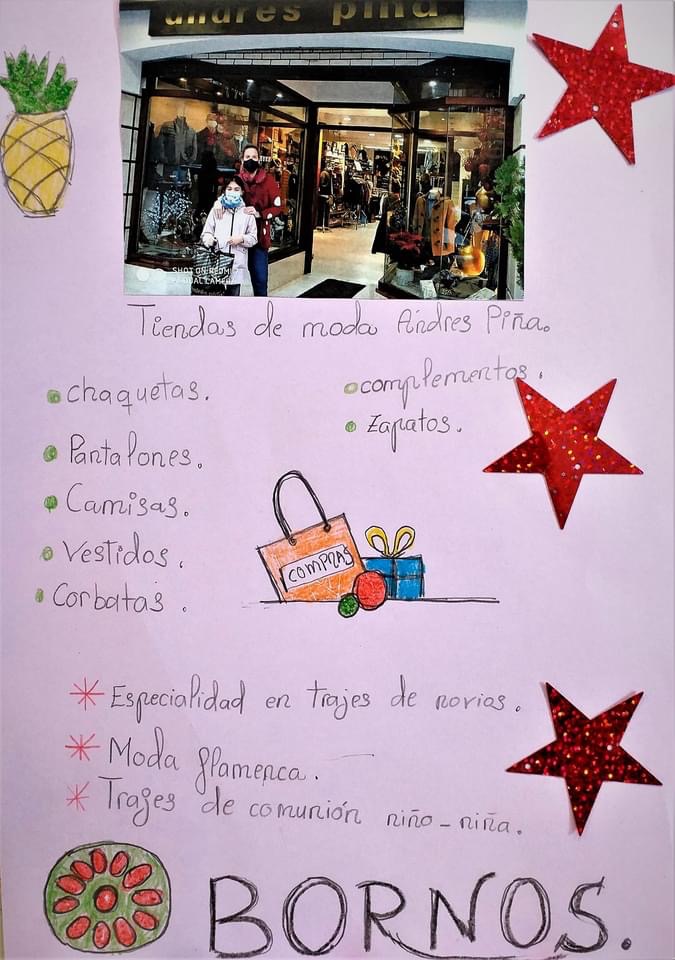 andrés piña
SHOT ON REDMI
AI DUAL CAMERA
Tiendas de moda Andres Piña.
• chaquetas.
• Pantalones.
• Camisas.
• Vestidos.
• Corbatas.
• complementos.
• Zapatos.
COMPRAS
* Especialidad en trajes de novios.
* Moda flamenca.
* Trajes de comunión niño-niña.
BORNOS.